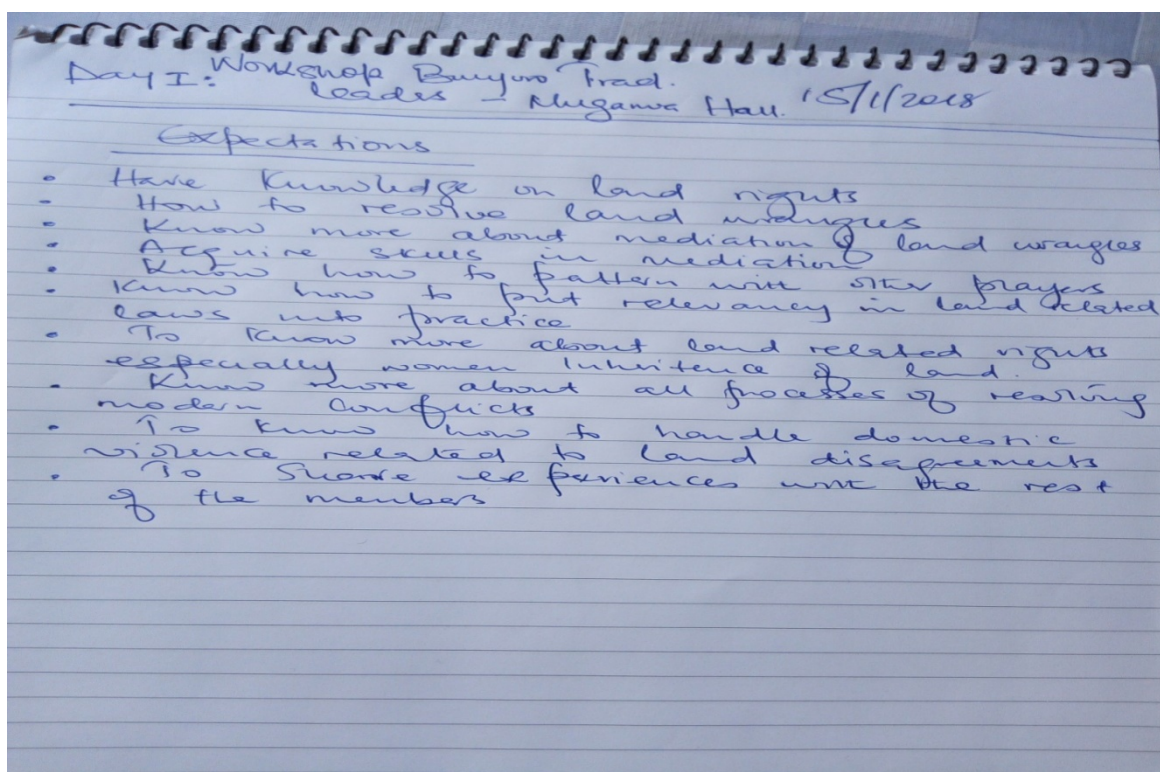 Day I: Workshop Bunyoro Trad.
leades - Mugamwa Hall. 15/1/2018
Expectations
• Have Knowledge on land rights
• How to resolve land wrangles
• Know more about mediation of land wrangles
• Acquire skills in mediation
• Know how to pattern with other players
• Know how to put relevancy in land related
laws into practice
• To Know more about land related rights
especially women Inheritence of land.
• Know more about all processes of
modern conflicts
• To know how to handle domestic
violence related to land disagreements
• To Share experiences with the rest
of the members